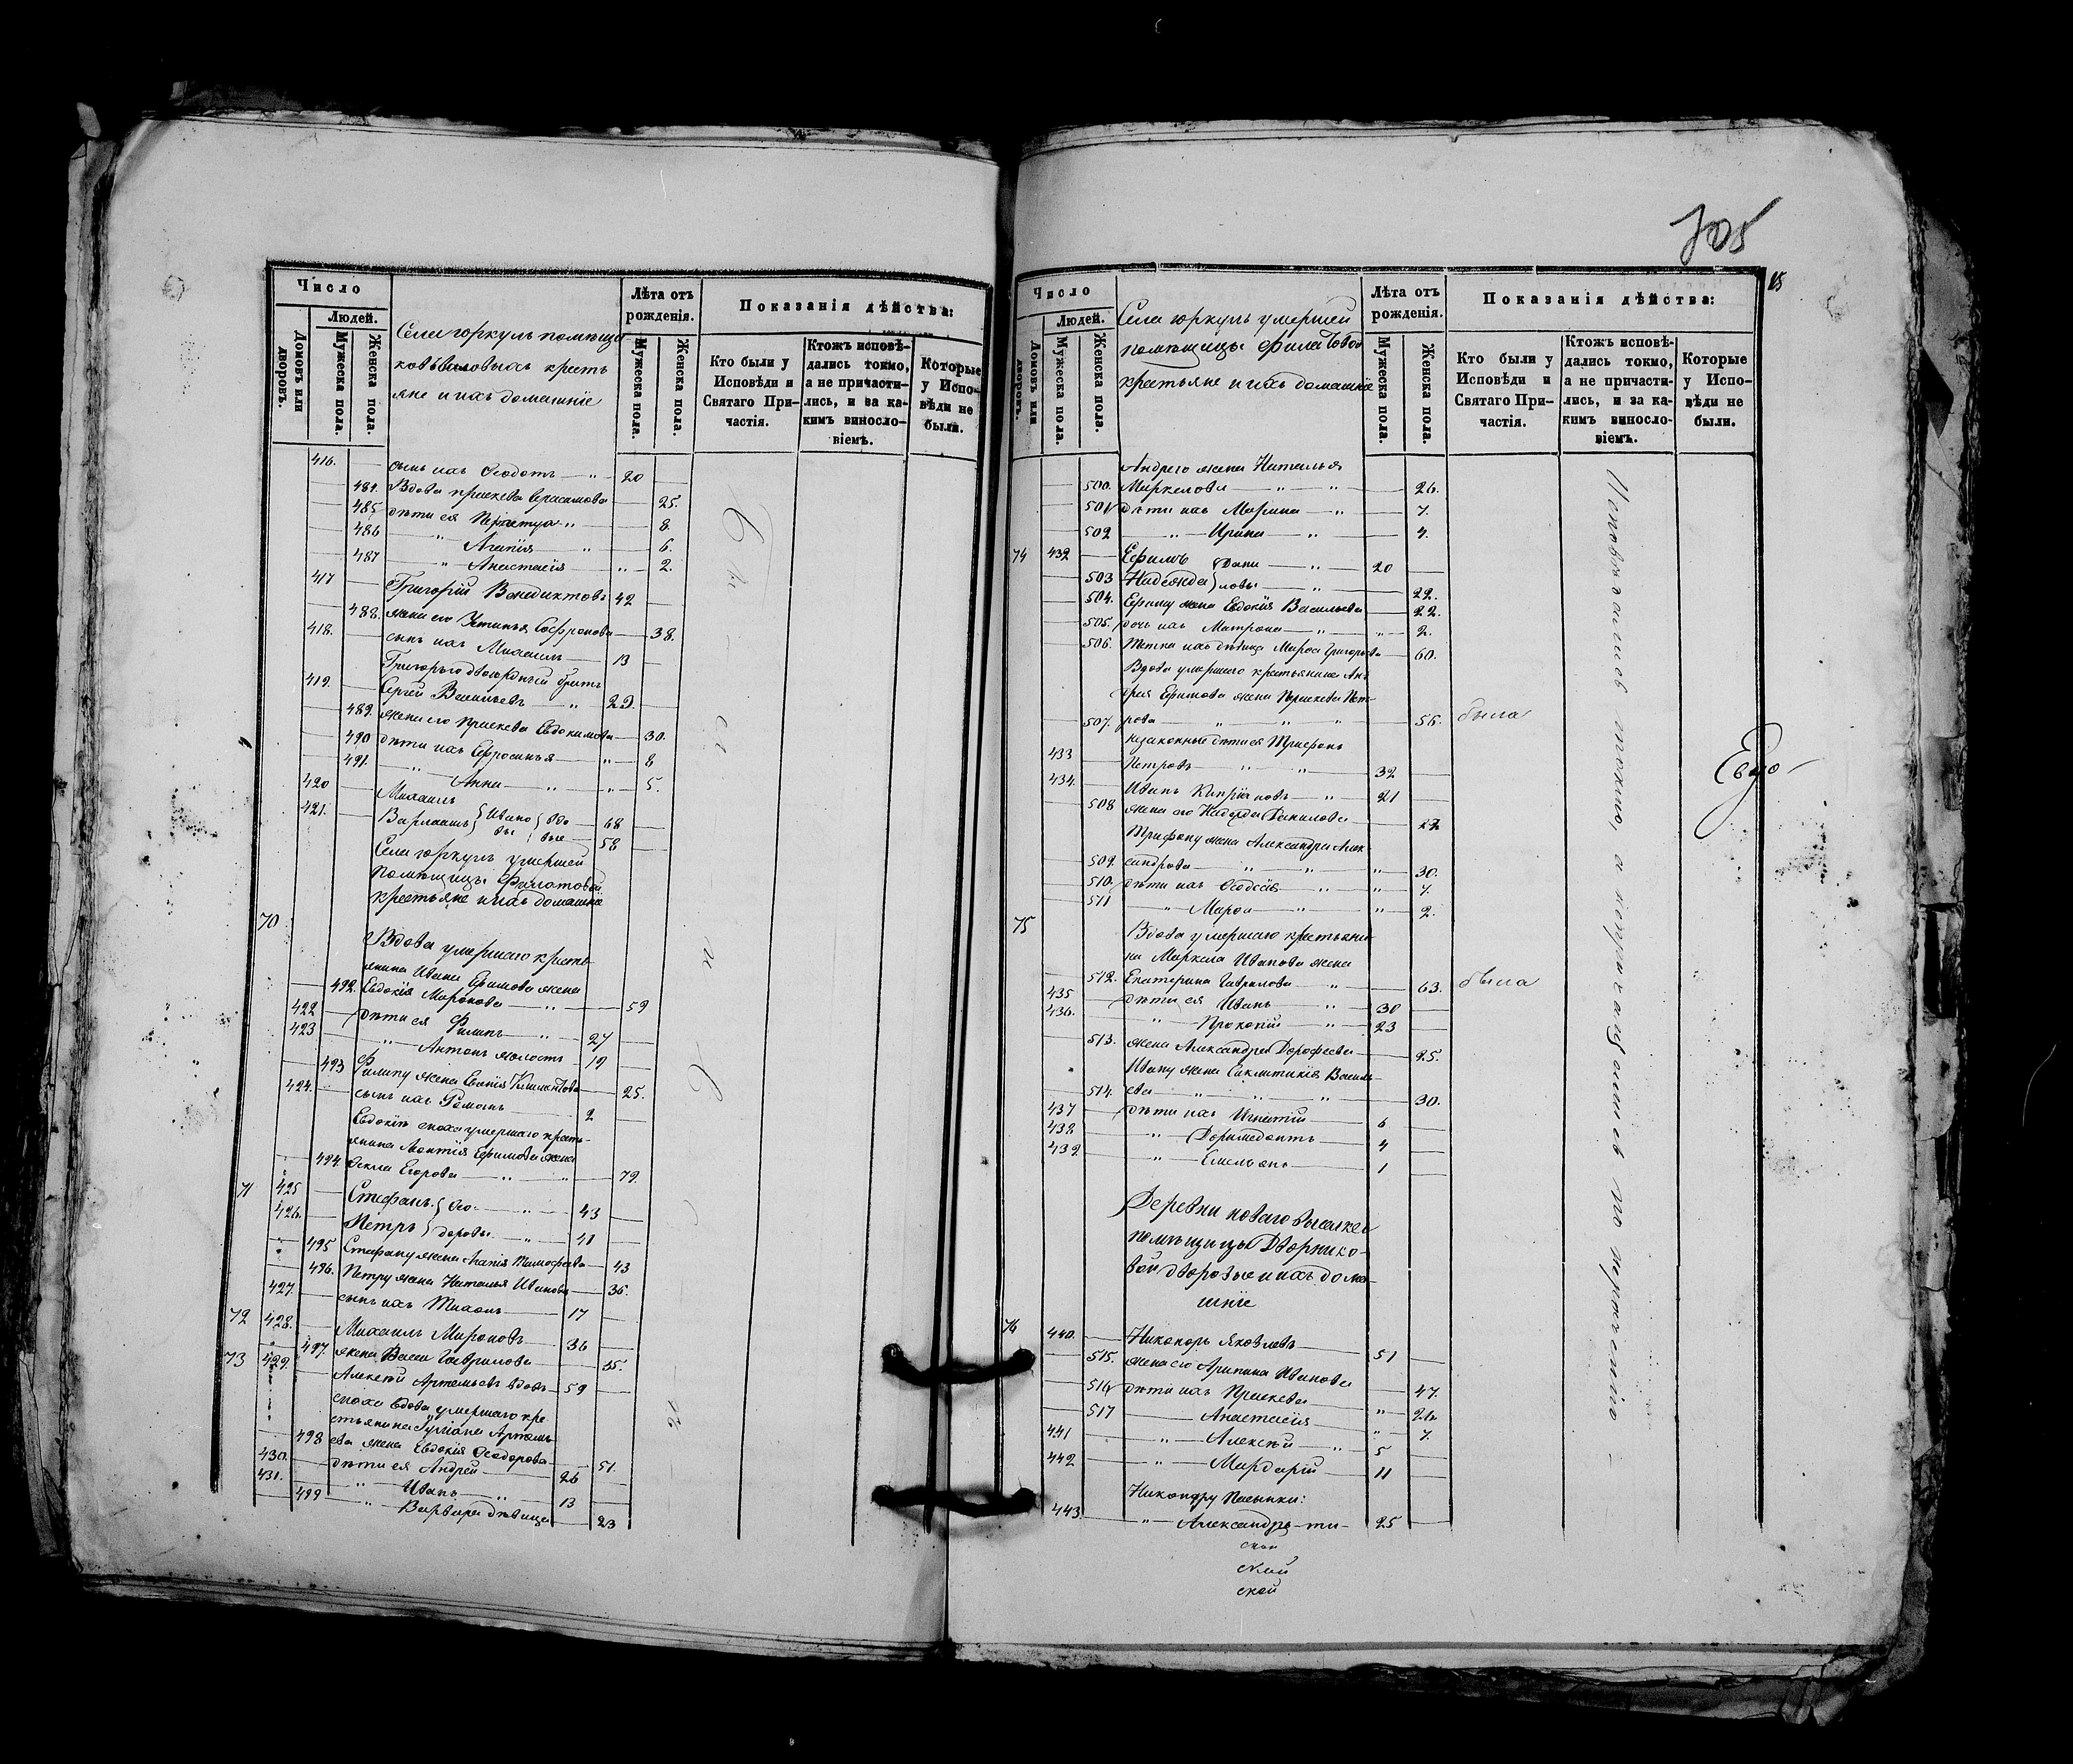 705
15
Число
Людей.
Домовъ или дворовъ.
Мужеска пола.
Женска пола.
Села Юркуль помѣщи
ковъ яловыхъ кресть
яне и ихъ домашніе
Лѣта отъ рожденія.
Мужеска пола.
Женска пола.
Показанія дѣйства:
Кто были у Исповѣди и Святаго Причастія.
Ктожъ исповѣдались токмо, а не причастились, и за какимъ винословіемъ.
Которые у Исповѣди не были.
416. сынъ ихъ Ѳеодотъ — " 20
484. Вдова Праскева Герасимова 25.
485 дѣти ея Перпетуа " 8.
486 " Агапія " 6.
487 " Анастасія " 2.
417 Григорій Венедиктовъ 42
488. жена его Устинья Софронова 38.
418. сынъ ихъ Михаилъ 13
Григорья двоюродный братъ
419. Сергей Васильевъ " 29.
489. жена его Праскева Евдокимова 30.
490 дѣти ихъ Ефросинья " 8
491. " Анна " " 5.
420 Михаилъ
421. Варлаамъ } Ивановы } вдовые 68
58
Села Юркуль умершей
помѣщицы Филатовой
крестьяне и ихъ домашніе
70
Вдова умершаго кресть
янина Ивана Ефимова жена
492. Евдокія Миронова " 59
422 дѣти ея Филипъ " 27
423 " Антонъ холостъ 19
493 Филипу жена Евгенія Климентова 25.
424. сынъ ихъ Романъ 2
Евдокіи сноха умершаго кресть
янина Леонтія Ефимова жена
494. Ѳекла Егорова " " 79.
71 425 Стефанъ } Ѳео- " 43
426. Петръ } доровы " 41
495 Стефану жена Агапія Тимофеева 43
496. Петру жена Наталья Иванова 36.
427. сынъ ихъ Тихонъ 17
72 428. Михаилъ Мироновъ 36
497. жена Васса Гаврилова 35.
73 429. Алексѣй Артемьевъ вдовъ 59
сноха вдова умершаго кре
стьянина Іуліана Артемь
498 ева жена Евдокія Ѳеодорова 51.
430. дѣти ея Андрей 26
431. " Иванъ " 13
499 " Варвара дѣвица 23
Число
Людей.
Домовъ или дворовъ.
Мужеска пола.
Женска пола.
Села Юркуль умершей
помѣщицы Филатовой
крестьяне и ихъ домашніе
Лѣта отъ рожденія.
Мужеска пола.
Женска пола.
Показанія дѣйства:
Кто были у Исповѣди и Святаго Причастія.
Ктожъ исповѣдались токмо, а не причастились, и за какимъ винословіемъ.
Которые у Исповѣди не были.
Андрею жена Наталья
500. Маркелова " " 26.
501 дѣти ихъ Марина " 7.
502 " Ирина " 4.
74 432 Ефимъ } Дани " 20
503 Надежда } ловы " 22.
504. Ефиму жена Евдокія Васильева 22.
505. дочь ихъ Матрона " " 2.
506. Тетка ихъ дѣвица Марѳа Григорьева 60.
Вдова умершаго крестьянина Ан
дрея Ефимова жена Праскева Пет
507. рова " " " 56. была
незаконные дѣти ея Трифонъ
433 Петровъ " " 32
434. Иванъ Кипріановъ " 21
508 жена его Надежда Данилова 22
Трифону жена Александра Алек
509. сандрова " " " 30.
510. дѣти ихъ Ѳеодосія " " 7.
511 " Марѳа " " 2.
75
Вдова умершаго крестьяни
на Маркела Иванова жена
512. Екатерина Гаврилова " 63. была
435 дѣти ея Иванъ " 30
436. " Прокопій " 23
513. жена Александра Дорофеева 25.
Ивану жена Синклитикія Василь
514. ева " " " 30.
437 дѣти ихъ Игнатій 6
438 " Доримедонтъ 4
439 " Емельянъ 1
Деревни новаго выселка
помѣщицы Дворнико-
вой дворовые и ихъ дома-
шніе
76 440. Никаноръ Яковлевъ 51
515. жена его Арипина Иванова 47.
516 дѣти ихъ Праскева " 21.
517 Анастасія " 7.
441 " Алексѣй " 5
442 " Мардарій 11
Никанору пасынки:
443. " Александръ 25
ской
Исповѣдались токмо, а не причащались по нерачению